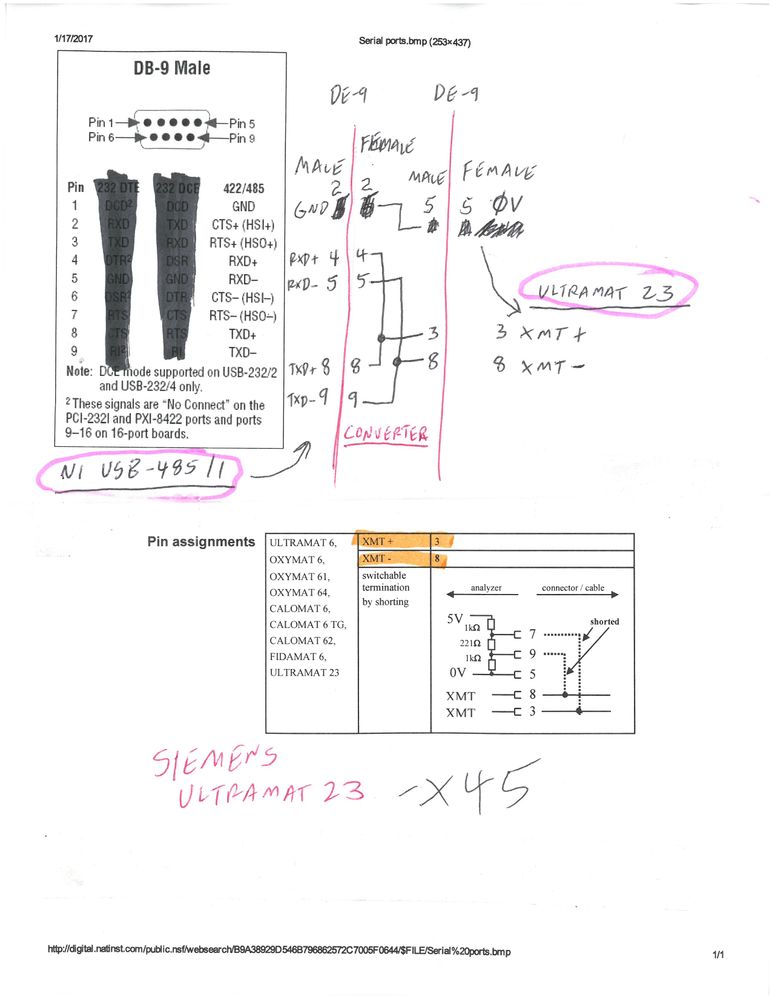 1/17/2017
Serial ports.bmp (253×437)
DB-9 Male
Pin 1
Pin 5
Pin 6
Pin 9
Pin 232 DTE 232 DCE 422/485
1 DCD² DCD GND
2 RXD TXD CTS+ (HSI+)
3 TXD RXD RTS+ (HSO+)
4 DTR² DSR RXD+
5 GND GND RXD–
6 DSR² DTR CTS– (HSI–)
7 RTS CTS RTS– (HSO–)
8 CTS RTS TXD+
9 RI² RI TXD–
Note: DCE mode supported on USB-232/2
and USB-232/4 only.
² These signals are "No Connect" on the
PCI-232I and PXI-8422 ports and ports
9–16 on 16-port boards.
NI USB-485/1
DE-9 DE-9
FEMALE
MALE MALE FEMALE
2 2
GND 5 5 0V
RXD+ 4 4
RXD- 5 5
3
8
TXD+ 8 8
TXD- 9 9
CONVERTER
ULTRAMAT 23
3 XMT +
8 XMT -
Pin assignments
ULTRAMAT 6,
OXYMAT 6,
OXYMAT 61,
OXYMAT 64,
CALOMAT 6,
CALOMAT 6 TG,
CALOMAT 62,
FIDAMAT 6,
ULTRAMAT 23
XMT + 3
XMT - 8
switchable
termination
by shorting
analyzer connector / cable
5V
1kΩ
7
shorted
221Ω
1kΩ
9
0V 5
XMT 8
XMT 3
SIEMENS
ULTRAMAT 23 -X45
http://digital.natinst.com/public.nsf/websearch/B9A38929D546B796862572C7005F0644/$FILE/Serial%20ports.bmp
1/1